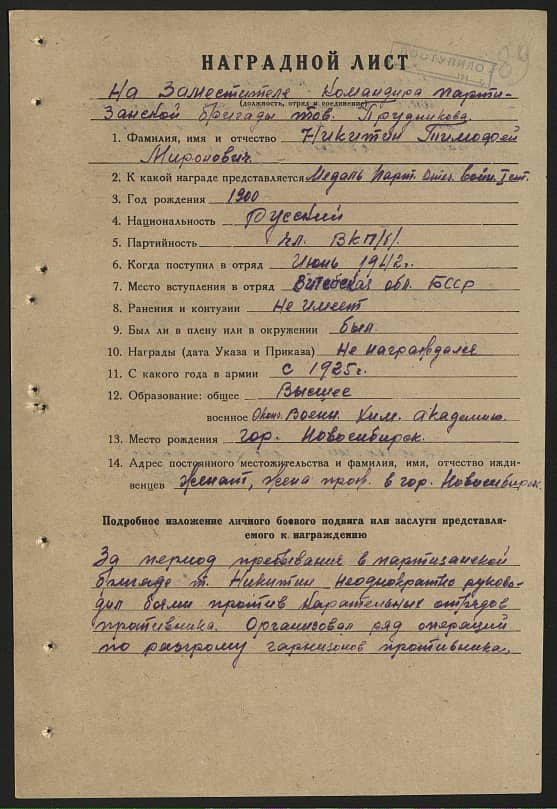 ПОСТУПИЛО
89
НАГРАДНОЙ ЛИСТ
На Заместителя Командира парти-
(должность, отряд и соединение)
занской бригады тов. Прудникова
1. Фамилия, имя и отчество Никитин Тимофей
Миронович.
2. К какой награде представляется Медаль Парт. Отеч. войн. I ст.
3. Год рождения 1900
4. Национальность Русский
5. Партийность чл. ВКП/б/.
6. Когда поступил в отряд Июнь 1942 г.
7. Место вступления в отряд Витебская обл. БССР
8. Ранения и контузии Не имеет
9. Был ли в плену или в окружении был
10. Награды (дата Указа и Приказа) Не награждался
11. С какого года в армии с 1925 г.
12. Образование: общее Высшее
военное Оконч. Воен. Хим. академию.
13. Место рождения гор. Новосибирск.
14. Адрес постоянного местожительства и фамилия, имя, отчество ижди-
венцев Женат, жена прож. в гор. Новосибирск.
Подробное изложение личного боевого подвига или заслуги представля-
емого к награждению
За период пребывания в партизанской
бригаде т. Никитин неоднократно руково-
дил боями против карательных отрядов
противника. Организовал ряд операций
по разгрому гарнизонов противника.